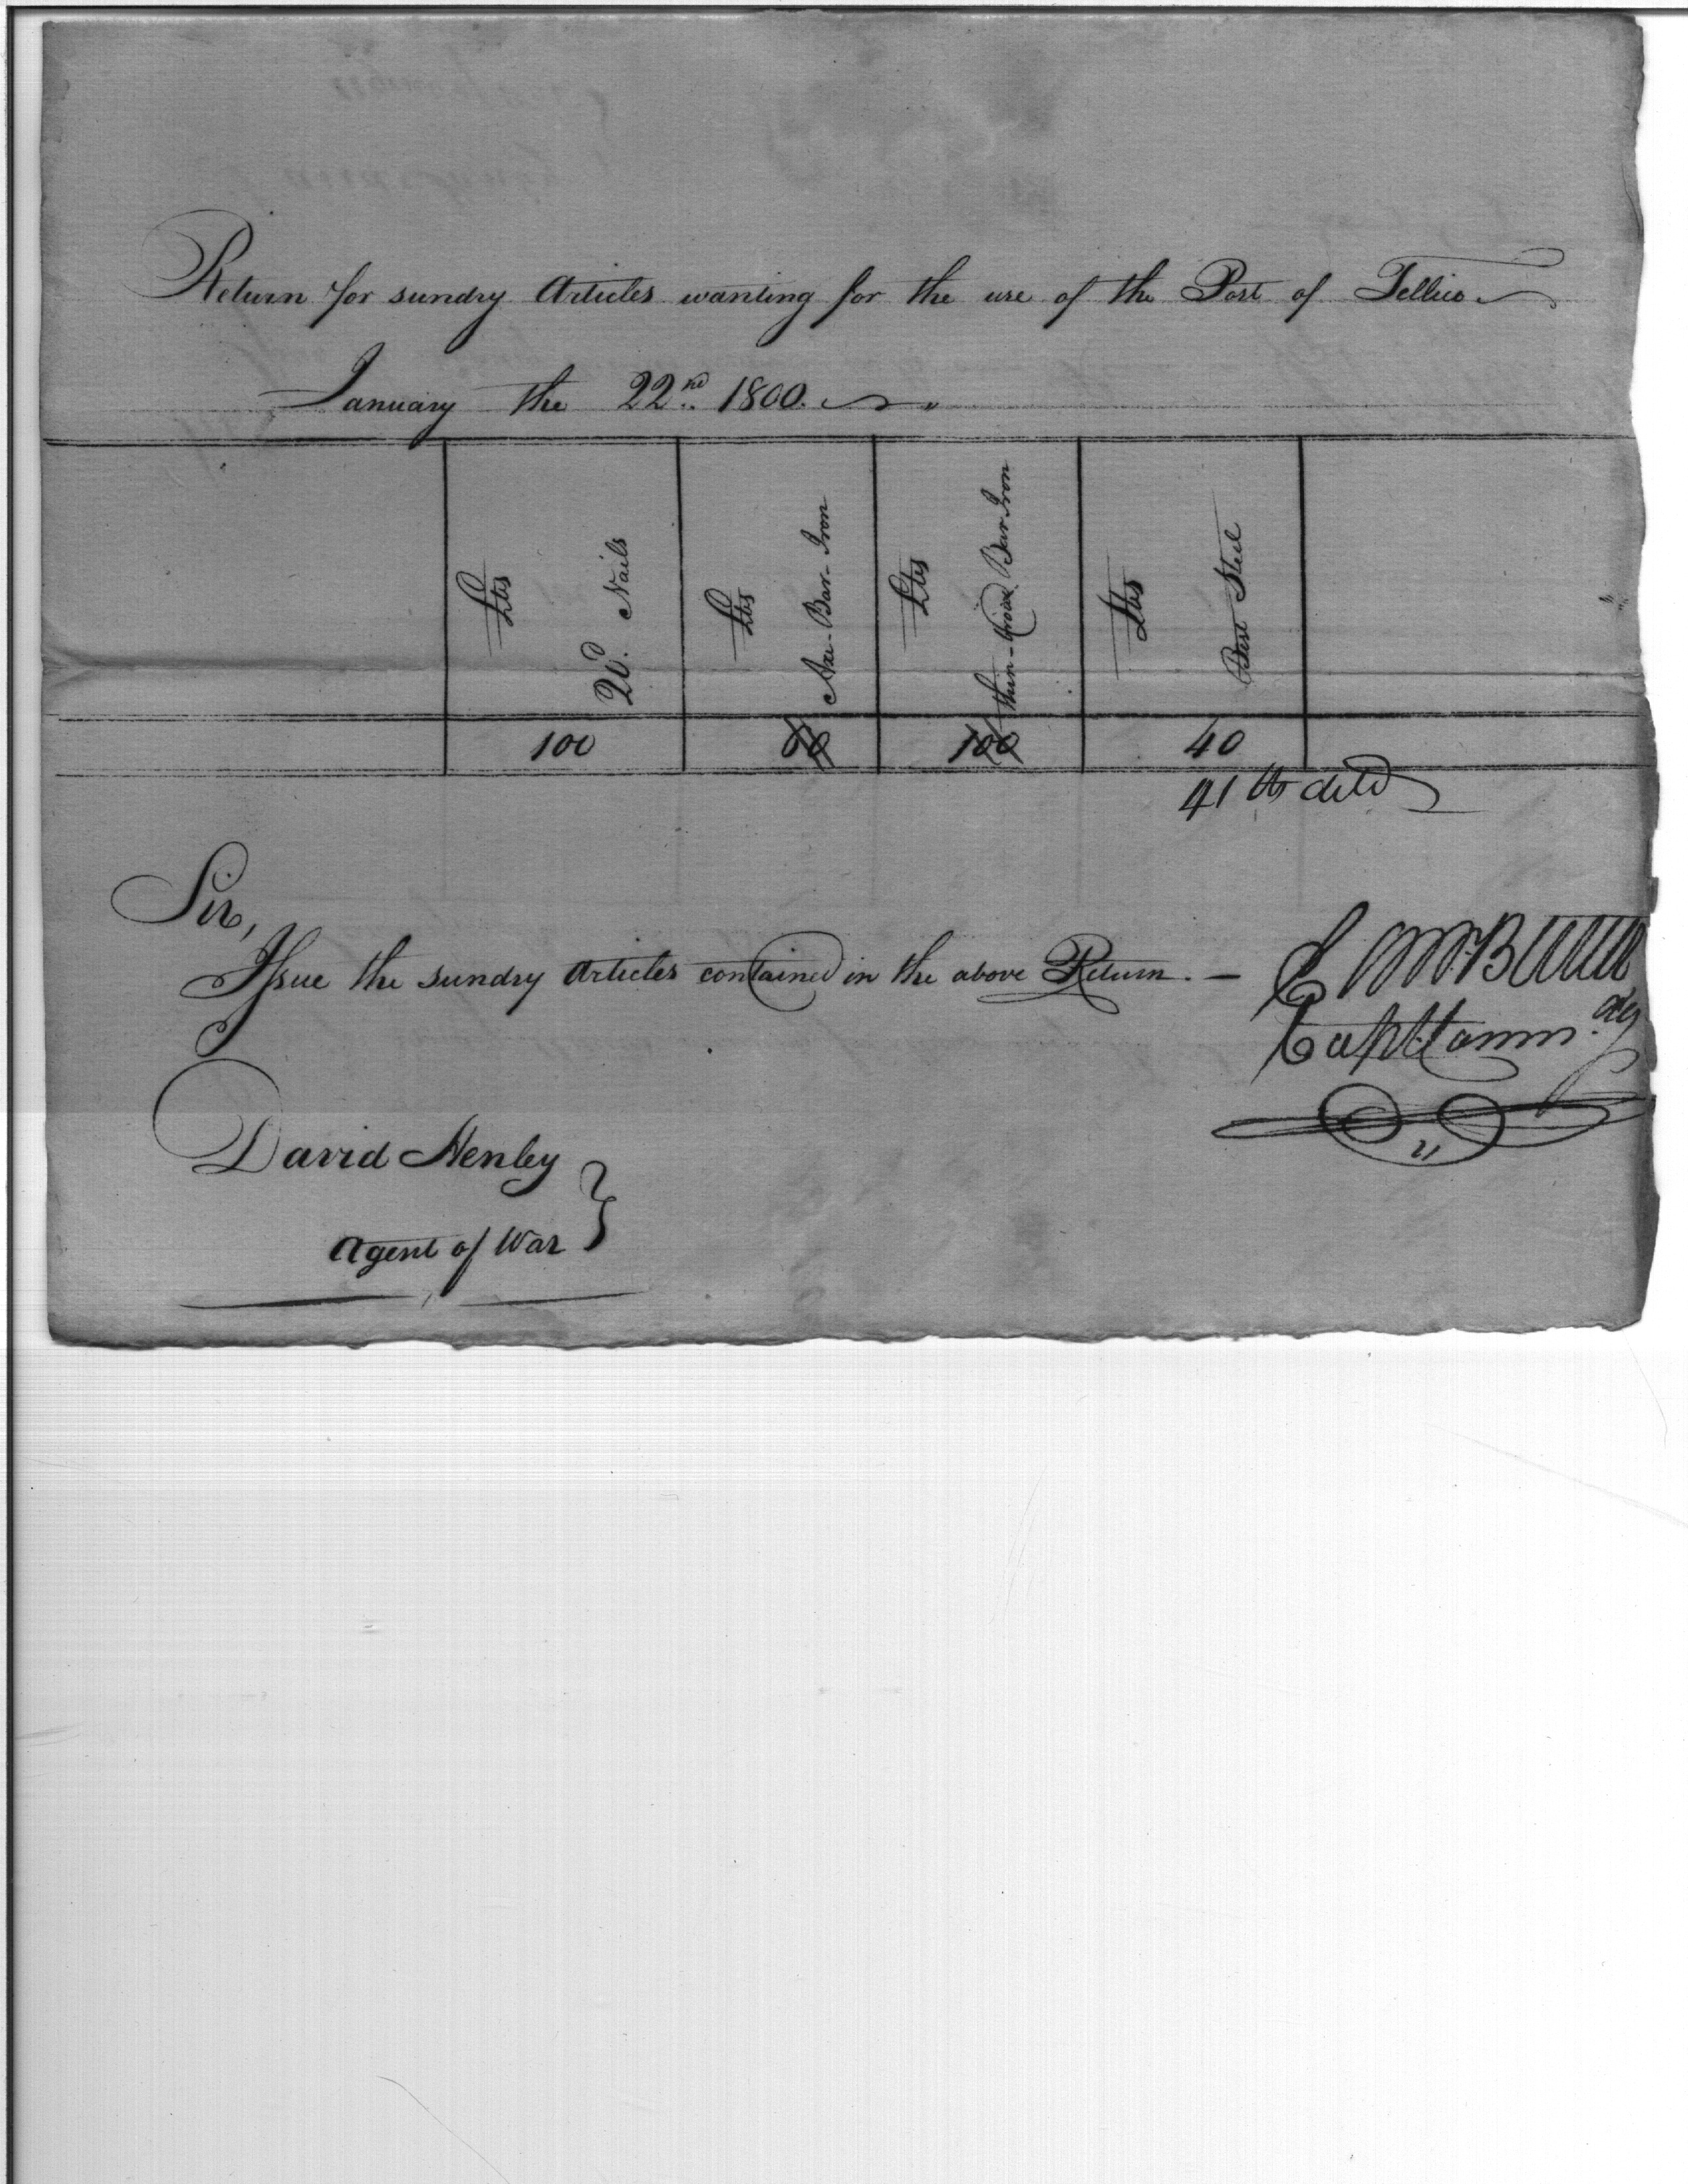 Return for sundry Articles wanting for the use of the Post of Tellico
January the 22nd 1800.
Lbs 20d. Nails
Lbs Axe-Bar-Iron
Lbs thin-broad Bar Iron
Lbs Best Steel
100 60 100 40
41 lb deld
Sir,
Issue the sundry Articles contained in the above Return. —
Capt Comm.dg
David Henley
Agent of War